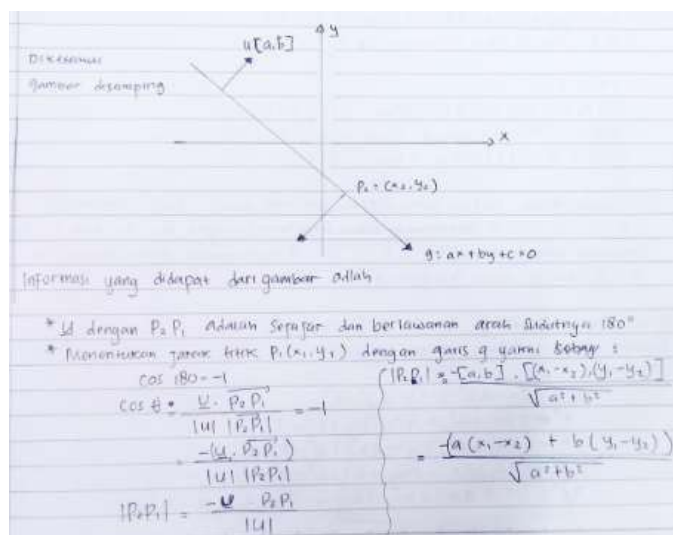 y
u[a,b]
Diketahui
gambar disamping
x
P₂ = (x₂, y₂)
g: ax + by + c = 0
Informasi yang didapat dari gambar adlah
* u dengan P₂P₁ adalah sejajar dan berlawanan arah sudutnya 180°
* Menentukan jarak titik P₁(x₁, y₁) dengan garis g yakni sebag :
cos 180 = -1
cos θ = u . P₂P₁ / |u| |P₂P₁| = -1
= -(u . P₂P₁) / |u| |P₂P₁|
|P₂P₁| = -u P₂P₁ / |u|
|P₂P₁| = -[a,b] . [(x₁-x₂),(y₁-y₂)] / √a²+b²
= -(a(x₁-x₂) + b(y₁-y₂)) / √a²+b²